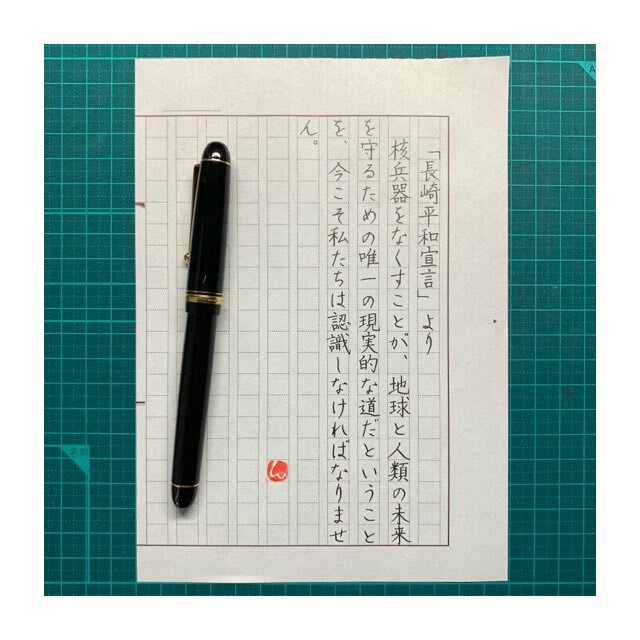 「長崎平和宣言」より
核兵器をなくすことが、地球と人類の未来
を守るための唯一の現実的な道だということ
を、今こそ私たちは認識しなければなりませ
ん。
ん
名称
A